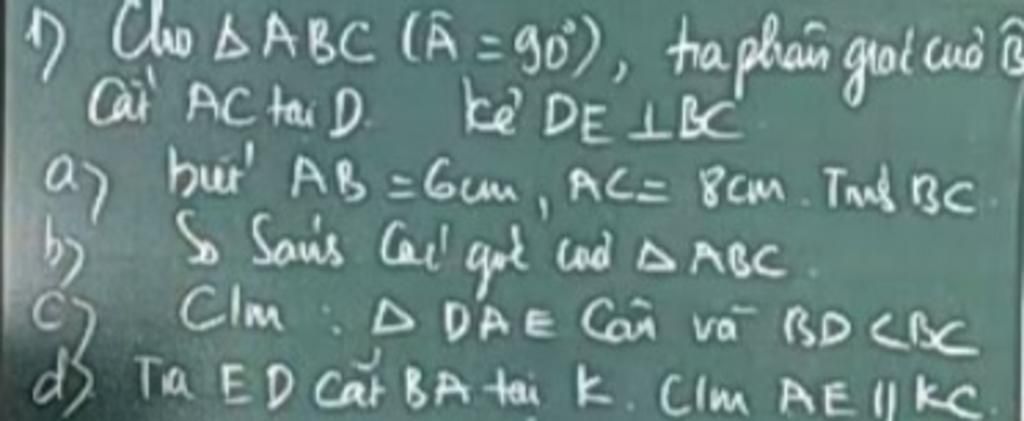 1) Cho Δ ABC (Â = 90°), tia phân giác của B̂
cắt AC tại D. kẻ DE ⊥ BC
a) biết AB = 6cm, AC = 8cm. Tính BC.
b) So Sánh Các góc của Δ ABC.
c) C/m : Δ DAE Cân và BD < BC
d) Tia ED cắt BA tại K. C/m AE // KC.